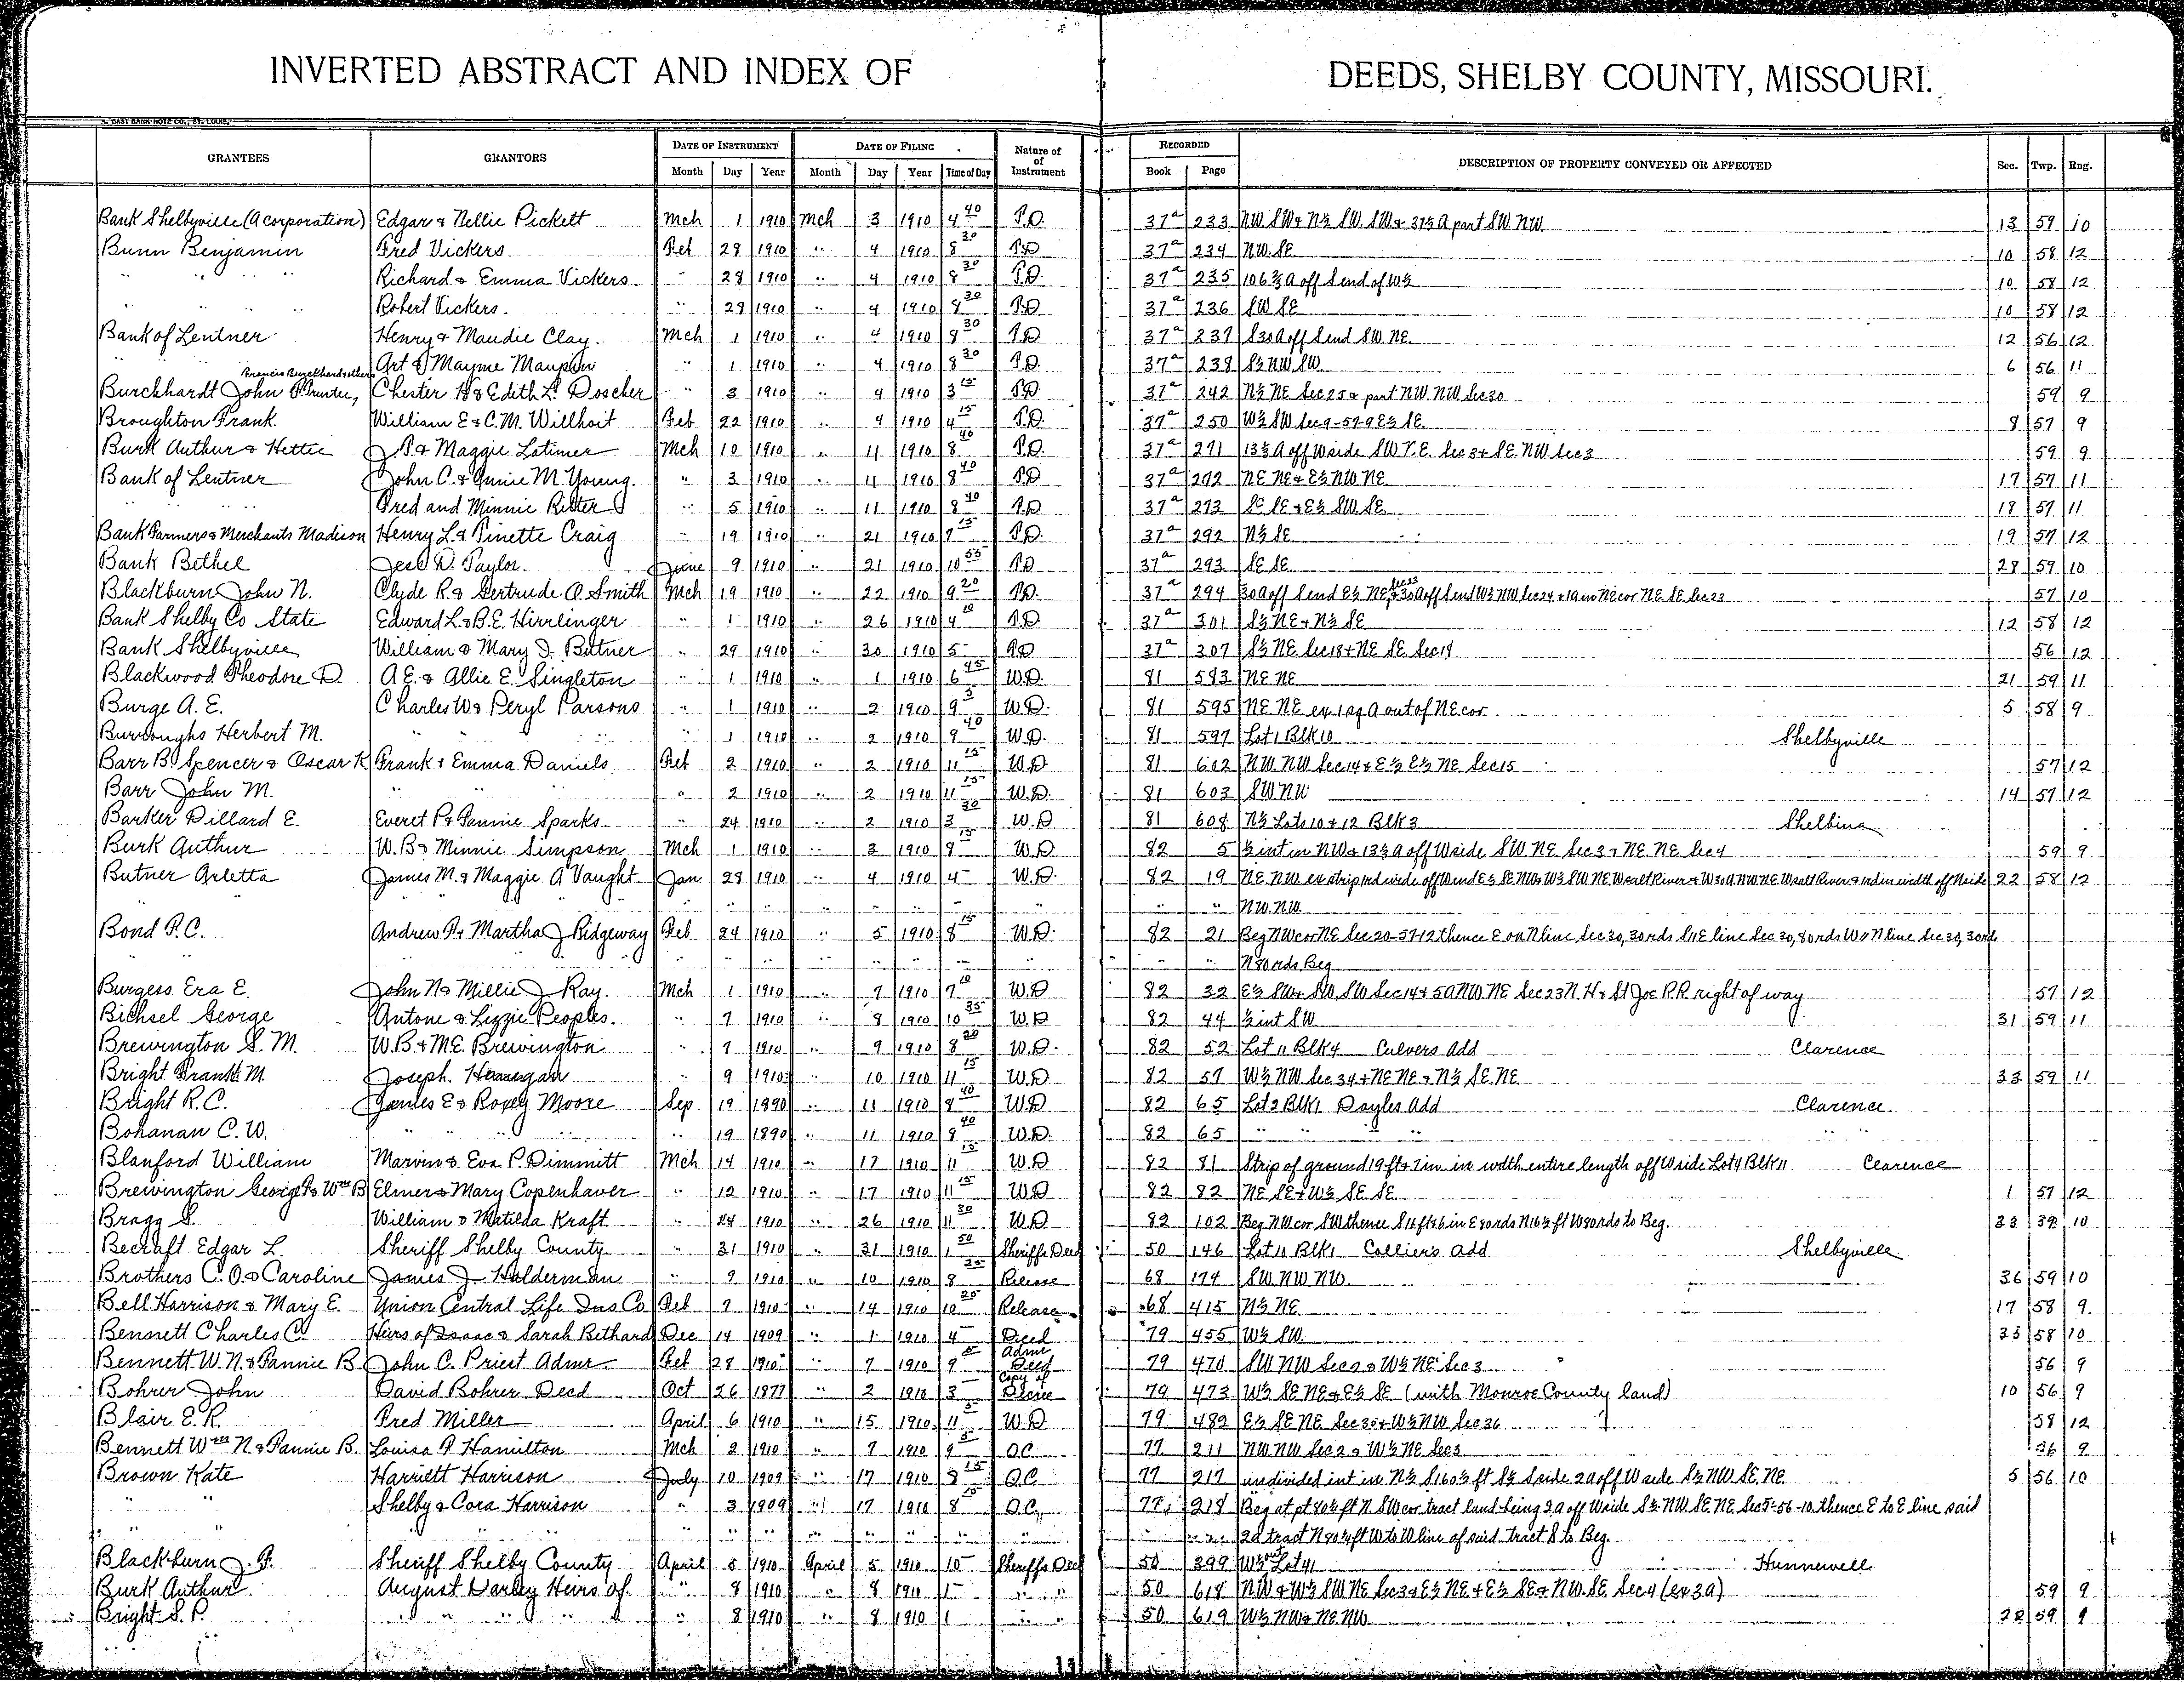 INVERTED ABSTRACT AND INDEX OF DEEDS, SHELBY COUNTY, MISSOURI.
GRANTEES GRANTORS DATE OF INSTRUMENT DATE OF FILING Nature of of Instrument RECORDED DESCRIPTION OF PROPERTY CONVEYED OR AFFECTED Sec. Twp. Rng.
Month Day Year Month Day Year Time of Day Book Page
Bank Shelbyville (A corporation) Edgar & Nellie Pickett Mch 1 1910 Mch 3 1910 4 40 T.D. 37a 233 NW SW & N½ SW SW & 31½ A part SW NW 13 59 10
Bunn Benjamin Fred Vickers Feb 28 1910 " 4 1910 8 30 T.D. 37a 234 NW. SE. 10 58 12
" " Richard & Emma Vickers " 28 1910 " 4 1910 8 30 T.D. 37a 235 106⅔ A off S end of W½ 10 58 12
" Robert Vickers. " 28 1910 " 4 1910 8 30 T.D. 37a 236 SW SE 10 58 12
Bank of Lentner Henry & Maudie Clay. Mch 1 1910 " 4 1910 8 30 T.D. 37a 237 S30A off S end SW. NE. 12 56 12
" Art & Mayme Maupin " 1 1910 " 4 1910 8 30 T.D. 37a 238 S½ NW SW. 6 56 11
Francis Burckhardt & others
Burckhardt John P. Trustee, Chester H & Edith L. Doscher " 3 1910 " 4 1910 3 15 T.D. 37a 242 N½ NE Sec 25 & part NW. NW Sec 30 59 9
Broughton Frank. William E & C.M. Willhoit Feb 22 1910 " 9 1910 4 15 T.D. 37a 250 W½ SW Sec 9-57-9 E½ SE. 8 57 9
Burk Arthur & Hettie J P & Maggie Latimer Mch 10 1910 " 11 1910 8 40 T.D. 37a 271 13⅓ A off W side SW N.E. Sec 3 & SE. NW Sec 3 59 9
Bank of Lentner John C. & Annie M. Young. " 3 1910 " 11 1910 8 40 T.D. 37a 272 NE NE & E½ NW NE. 17 57 11
" Fred and Minnie Ritter " 5 1910 " 11 1910 8 40 T.D. 37a 273 SE SE & E½ SW. SE. 18 57 11
Bank Farmers & Merchants Madison Henry L. & Finette Craig " 19 1910 " 21 1910 9 15 T.D. 37a 292 N½ SE 19 57 12
Bank Bethel Jese D. Taylor. June 9 1910 " 21 1910 10 55 T.D. 37a 293 SE SE. 28 59 10
Blackburn John N. Clyde R. & Gertrude A. Smith Mch 19 1910 " 22 1910 9 20 T.D. 37a 294 30A off S end E½ NE Sec 23 & 30A off S end W½ NW Sec 24 & 1A in NE cor NE. SE. Sec 23 57 10
Bank Shelby Co State Edward L. & B.E. Hirrlinger " 1 1910 " 26 1910 4 10 T.D. 37a 301 S½ NE & N½ SE 12 58 12
Bank Shelbyville William & Mary J. Butner " 29 1910 " 30 1910 5 T.D. 37a 307 S½ NE Sec 18 & NE SE. Sec 18 56 12
Blackwood Theodore D. A E. & Allie E. Singleton " 1 1910 " 1 1910 6 45 W.D. 81 593 NE NE 21 59 11
Burge A. E. Charles W & Peryl Parsons " 1 1910 " 2 1910 9 5 W.D. 81 595 NE. NE ex 1 sq A out of NE cor 5 58 9
Burroughs Herbert M. " " 1 1910 " 2 1910 9 40 W.D. 81 597 Lot 1 Blk 10 Shelbyville
Barr B. Spencer & Oscar K Frank & Emma Daniels Feb 2 1910 " 2 1910 11 15 W.D. 81 602 NW. NW Sec 14 & E½ E½ NE Sec 15 57 12
Barr John M. " " 2 1910 " 2 1910 11 15 W.D. 81 603 SW NW 14 57 12
Barker Dillard E. Everet P & Fannie Sparks " 24 1910 " 2 1910 3 30 W.D 81 608 N½ Lots 10 & 12 Blk 3 Shelbina
Burk Arthur W.B & Minnie Simpson Mch 1 1910 " 3 1910 8 15 W.D 82 5 ½ int in NW & 13⅓ A off W side SW NE Sec 3 & NE. NE Sec 4 59 9
Butner Arletta James M. & Maggie A Vaught Jan 28 1910 " 4 1910 4 W.D. 82 19 NE. NW ex strip rd wide off W end E½ SE NW & W½ SW NE W salt River & W30A NW NE W salt River & rd in width off N side 22 58 12
" " " " " " " " NW. NW
Bond P.C. Andrew P & Martha J Ridgeway Feb 24 1910 " 5 1910 8 15 W.D. 82 21 Beg NW cor NE Sec 20-57-12 thence E on N line Sec 30, 30 rds S 11 E line Sec 30, 80 rds W 11 N line Sec 30, 30 rds
" " " " " " " " N 80 rds Beg
Burgess Era E. John N & Millie J Ray Mch 1 1910 " 7 1910 7 10 W.D 82 32 E½ SW & SW SW Sec 14 & 5A NW NE Sec 23 N. H & St Joe R.R. right of way 57 12
Bichsel George Antone & Lizzie Peoples. " 7 1910 " 8 1910 10 35 W.D 82 44 ½ int SW 31 59 11
Brewington S. M. W.B. & M.E. Brewington " 7 1910 " 9 1910 8 20 W.D. 82 52 Lot 11 Blk 4 Culvers Add Clarence
Bright Frank M. Joseph. " 9 1910 " 10 1910 11 15 W.D. 82 57 W½ NW Sec 34 & NE NE & N½ SE. NE 33 59 11
Bright R. C. James E & Roxey Moore Sep 19 1890 " 11 1910 8 40 W.D 82 65 Lot 2 Blk 1 Dayles Add Clarence.
Bohanan C. W. " " 19 1890 " 11 1910 8 40 W.D. 82 65 " " " "
Blanford William Marvin & Eva P. Dimmitt Mch 14 1910 " 17 1910 11 15 W.D 82 81 Strip of ground 19 ft & 7 in in width entire length off W side Lot 4 Blk 11 Clarence
Brewington George P & Wm B Elmer & Mary Copenhaver " 12 1910 " 17 1910 11 15 W.D 82 82 NE SE & W½ SE SE 1 57 12
Bragg S. William & Matilda Kraft " 24 1910 " 26 1910 11 30 W.D 82 102 Beg NW cor SW thence S 16 ft & 6 in E 80 rds N 16½ ft W 80 rds to Beg. 33 10
Becraft Edgar L. Sheriff Shelby County " 31 1910 " 31 1910 1 50 Sheriffs Deed 50 146 Lot 11 Blk 1 Collier's Add Shelbyville
Brothers C. O. & Caroline James J Halderman " 9 1910 " 10 1910 8 25 Release 68 174 SW. NW NW. 36 59 10
Bell Harrison & Mary E. Union Central Life Ins Co Feb 7 1910 " 14 1910 10 25 Release 68 415 N½ NE 17 58 9
Bennett Charles C. Heirs of Isaac & Sarah Bethard Dec 14 1909 " 1 1910 4 Deed 79 455 W½ SW. 33 58 10
Bennett W. N. & Fannie B. John C. Priest Admr. Feb 28 1910 " 7 1910 9 5 Admr Deed 79 470 SW NW Sec 2 & W½ NE Sec 3 56 9
Bohrer John David Bohrer Decd Oct 26 1877 " 2 1910 3 Copy of Decree 79 473 W½ SE NE & E½ SE. (with Monroe County land) 10 56 9
Blair E. R. Fred Miller April 6 1910 " 15 1910 11 5 W.D 79 482 E½ SE NE Sec 35 & W½ NW Sec 36 58 12
Bennett Wm N. & Fannie B. Louisa P Hamilton Mch 2 1910 " 7 1910 9 5 Q.C. 77 211 NW NW Sec 2 & W½ NE Sec 3 56 9
Brown Kate Harriett Harrison July 10 1909 " 17 1910 8 15 Q.C 77 217 undivided int in N½ S 160½ ft S½ S side 2A off W side S½ NW SE. NE 5 56 10
" " Shelby & Cora Harrison " 3 1909 " 17 1910 8 15 Q.C. 77 218 Beg at pt 80¼ ft N SW cor tract land being 2 a off W side S½ NW SE NE Sec 5-56-10 thence E to E line said
" " " " " " " " 2a tract N 80¼ ft W to W line of said tract S to Beg.
Blackburn J. F. Sheriff Shelby County April 5 1910 April 5 1910 10 Sheriffs Deed 50 399 W½ Lot 41 Hunnewell
Burk Arthur August Darley Heirs of " 8 1910 " 8 1910 1 " " 50 618 NW & W½ SW NE Sec 3 & E½ NE & E½ SE & NW. SE. Sec 4 (ex 3a) 59 9
Bright S. P. " " " " 8 1910 " 8 1910 1 " " 50 619 W½ NW & NE NW 28 59 9